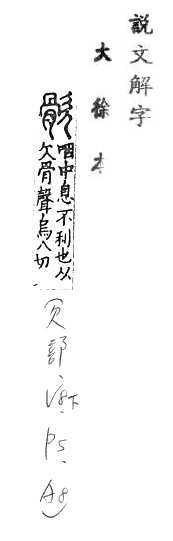 説文解字
大徐本
咽中息不利也从
欠骨聲烏八切
欠部、